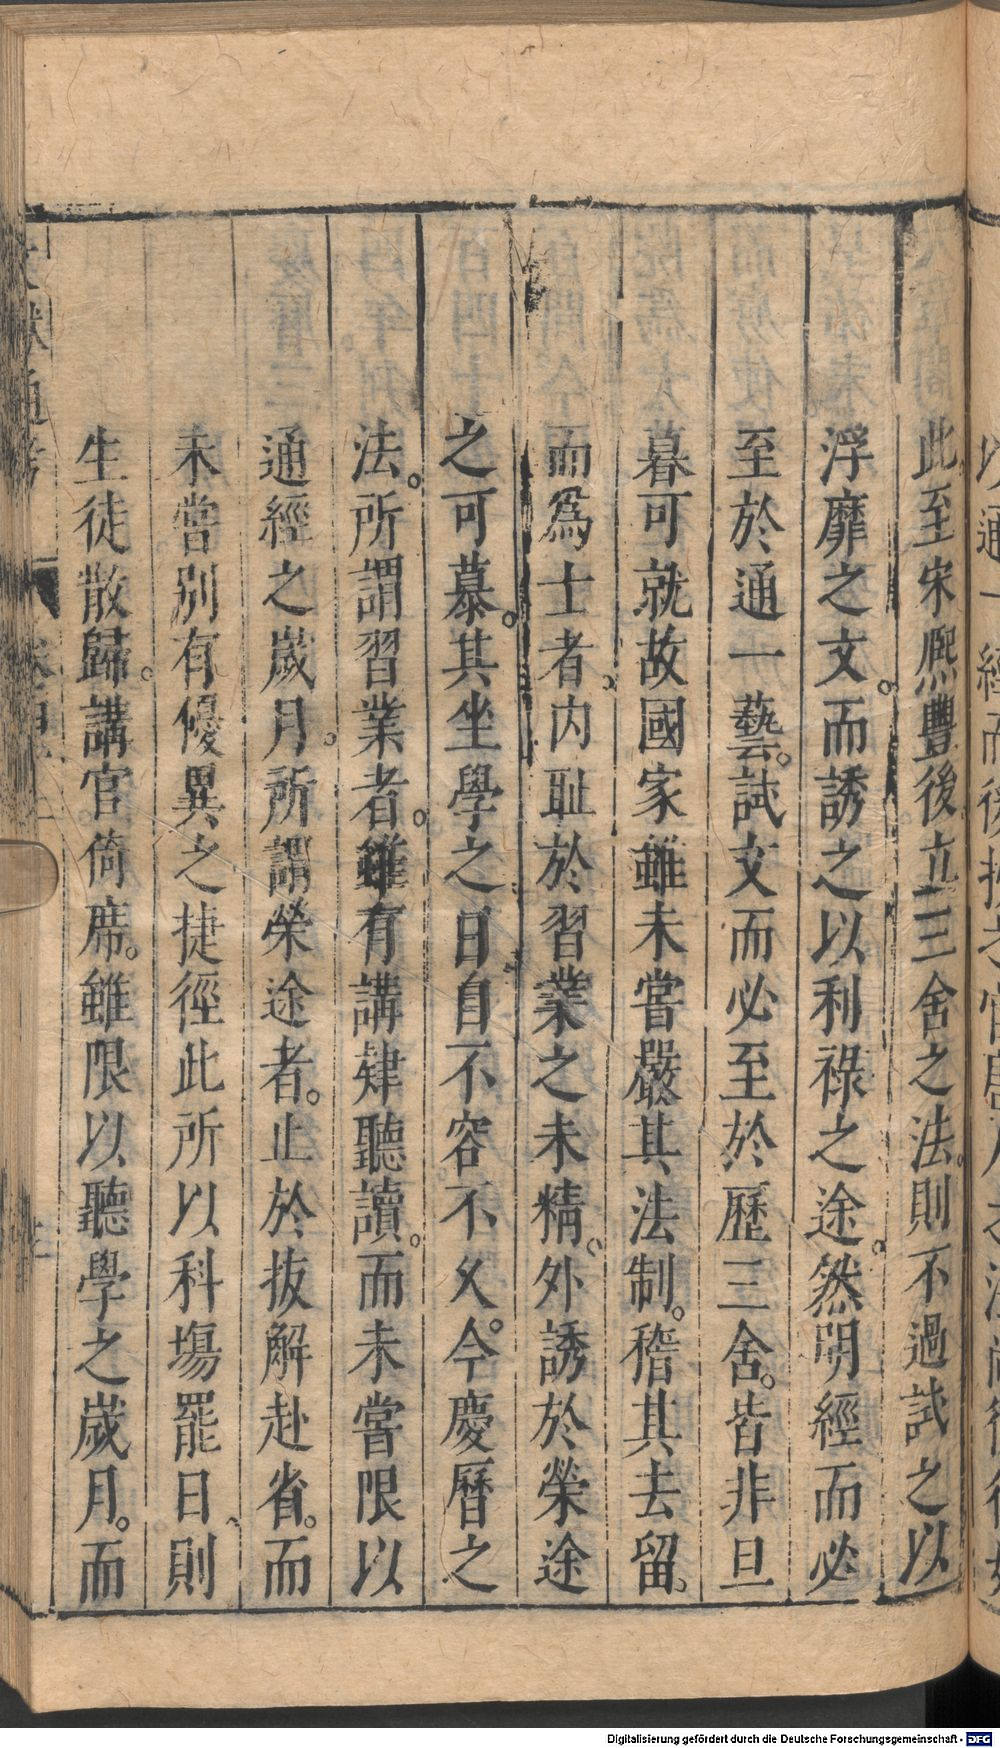 此至宋熈豐後立三舍之法則不過試之以
浮靡之文而誘之以利祿之途然明經而必
至於通一藝試文而必至於歷三舍皆非旦
暮可就故國家雖未嘗嚴其法制稽其去留
而爲士者内耻於習業之未精外誘於榮途
之可慕其坐學之日自不容不乆今慶曆之
法所謂習業者雖有講肄聽讀而未嘗限以
通經之歲月所謂榮途者止於抜解赴省而
未嘗別有優異之捷徑此所以科塲罷日則
生徒散歸講官倚席雖限以聽學之歲月而
Digitalisierung gefördert durch die Deutsche Forschungsgemeinschaft - DFG